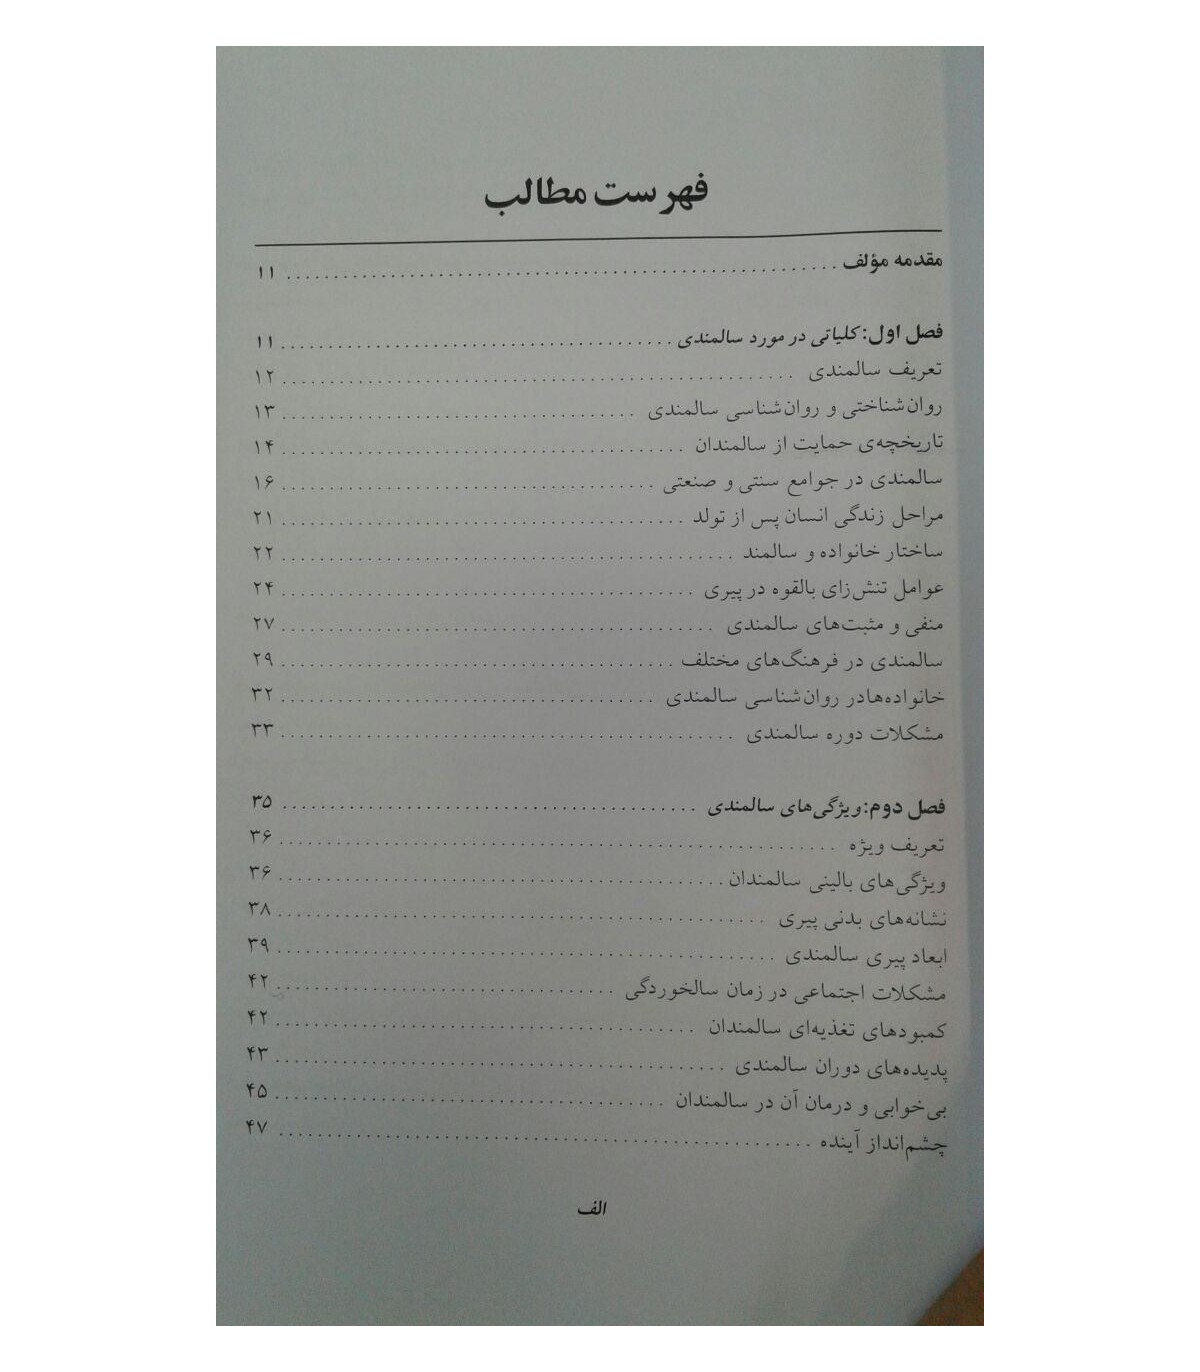 فهرست مطالب
مقدمه مؤلف ........ ۱۱
فصل اول: کلیاتی در مورد سالمندی ........ ۱۱
تعریف سالمندی ........ ۱۲
روان‌شناختی و روان‌شناسی سالمندی ........ ۱۳
تاریخچه‌ی حمایت از سالمندان ........ ۱۴
سالمندی در جوامع سنتی و صنعتی ........ ۱۶
مراحل زندگی انسان پس از تولد ........ ۲۱
ساختار خانواده و سالمند ........ ۲۲
عوامل تنش‌زای بالقوه در پیری ........ ۲۴
منفی و مثبت‌های سالمندی ........ ۲۷
سالمندی در فرهنگ‌های مختلف ........ ۲۹
خانواده‌هادر روان‌شناسی سالمندی ........ ۳۲
مشکلات دوره سالمندی ........ ۳۳
فصل دوم: ویژگی‌های سالمندی ........ ۳۵
تعریف ویژه ........ ۳۶
ویژگی‌های بالینی سالمندان ........ ۳۶
نشانه‌های بدنی پیری ........ ۳۸
ابعاد پیری سالمندی ........ ۳۹
مشکلات اجتماعی در زمان سالخوردگی ........ ۴۲
کمبودهای تغذیه‌ای سالمندان ........ ۴۲
پدیده‌های دوران سالمندی ........ ۴۳
بی‌خوابی و درمان آن در سالمندان ........ ۴۵
چشم‌انداز آینده ........ ۴۷
الف